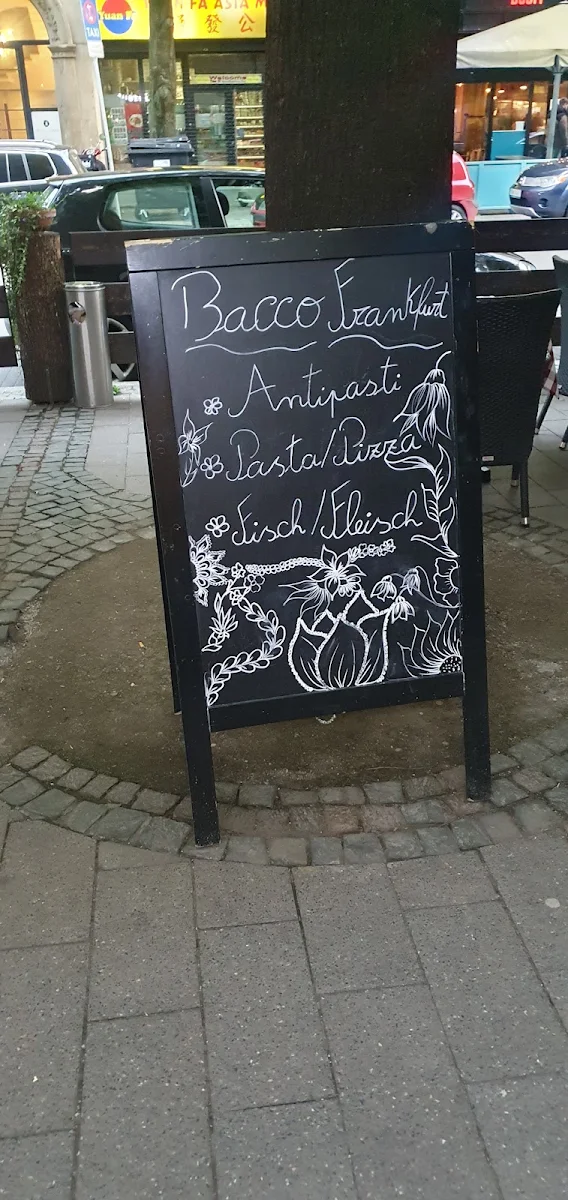 Yuan Fa
FA ASIA M
發公
TAXI
Welcome
Bacco Frankfurt
Antipasti
Pasta/Pizza
Fisch/Fleisch